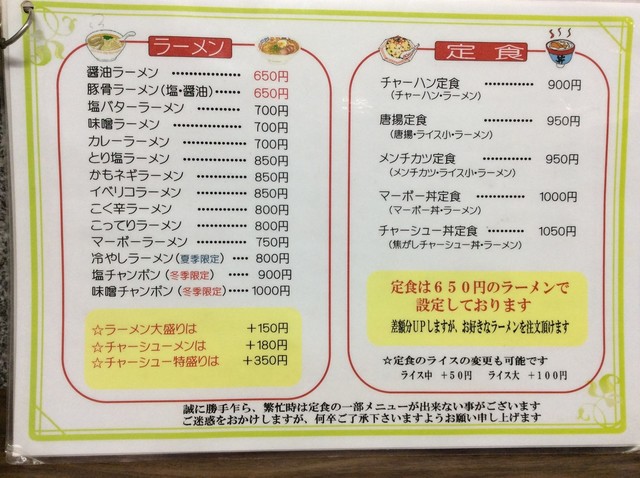 ラーメン
醤油ラーメン ……………… 650円
豚骨ラーメン(塩・醤油)…… 650円
塩バターラーメン ………… 700円
味噌ラーメン ……………… 700円
カレーラーメン …………… 700円
とり塩ラーメン …………… 850円
かもネギラーメン ………… 850円
イベリコラーメン ………… 850円
こく辛ラーメン …………… 800円
こってりラーメン ………… 800円
マーボーラーメン ………… 750円
冷やしラーメン(夏季限定)…… 800円
塩チャンポン(冬季限定)…… 900円
味噌チャンポン(冬季限定)…… 1000円
☆ラーメン大盛りは +150円
☆チャーシューメンは +180円
☆チャーシュー特盛りは +350円
定食
チャーハン定食 ………… 900円
(チャーハン・ラーメン)
唐揚定食 ………… 950円
(唐揚・ライス小・ラーメン)
メンチカツ定食 ………… 950円
(メンチカツ・ライス小・ラーメン)
マーボー丼定食 ………… 1000円
(マーボー丼・ラーメン)
チャーシュー丼定食 ……… 1050円
(焦がしチャーシュー丼・ラーメン)
定食は650円のラーメンで
設定しております
差額分UPしますが、お好きなラーメンを注文頂けます
☆定食のライスの変更も可能です
ライス中 +50円 ライス大 +100円
誠に勝手乍ら、繁忙時は定食の一部メニューが出来ない事がございます
ご迷惑をおかけしますが、何卒ご了承下さいますようお願い申し上げます